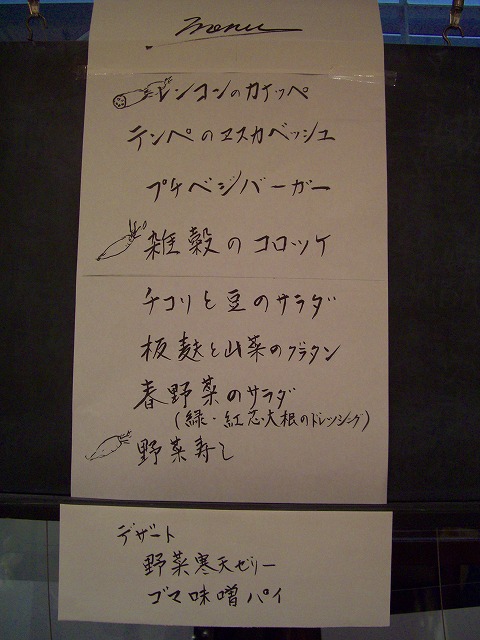 menu
レンコンのカナッペ
テンペのエスカベッシュ
プチベジバーガー
雑穀のコロッケ
チコリと豆のサラダ
板麩と山菜のグラタン
春野菜のサラダ
(緑・紅芯大根のドレッシング)
野菜寿し
デザート
野菜寒天ゼリー
ゴマ味噌パイ